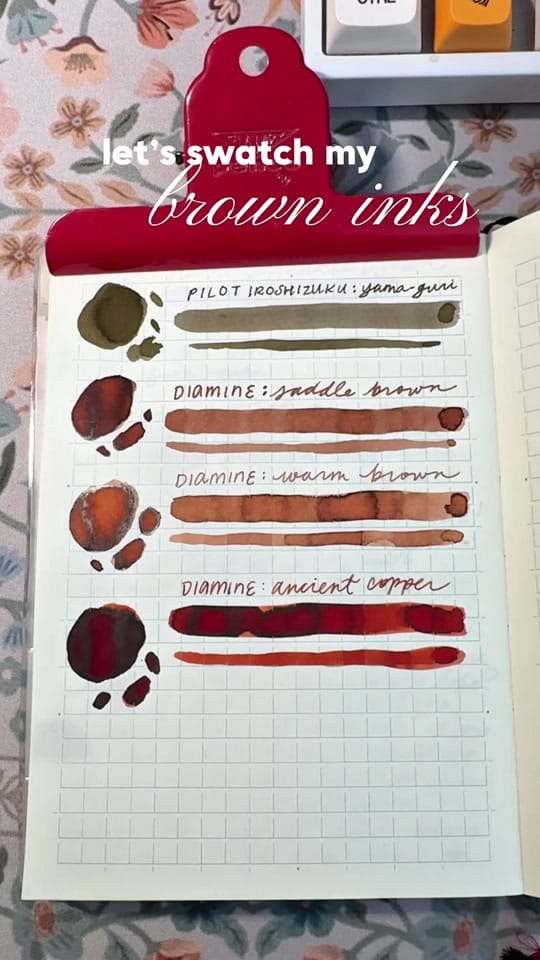 CTRL
let's swatch my
brown inks
PILOT IROSHIZUKU: yama-guri
DIAMINE: saddle brown
DIAMINE: warm brown
DIAMINE: ancient copper